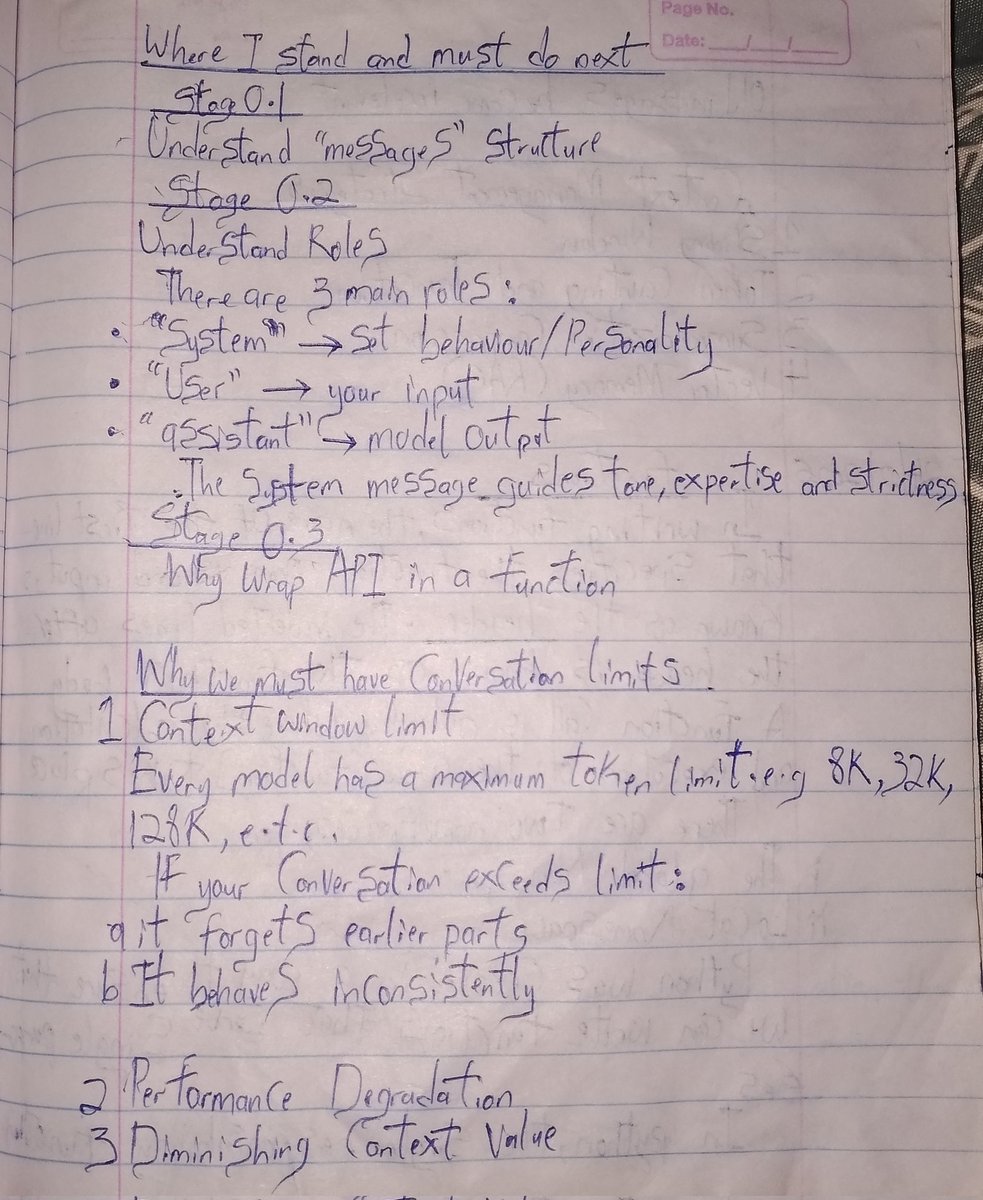 Page No.
Date:
Where I stand and must do next
Stage 0.1
Understand "messages" Strutture
Stage 0.2
Understand Roles
There are 3 main roles:
• "System" → Set behaviour/Personality
• "User" → your input
• "assistant" → model output
The System message guides tone, expertise and strictness
Stage 0.3
Why Wrap API in a function
Why we must have Conversation limits
1 Context window limit
Every model has a maximum token limit. e.g 8K, 32K,
128K, e.t.c.
If your Conversation exceeds limit:
a it forgets earlier parts
b It behaves inconsistently
2 Performance Degradation
3 Diminishing Context Value